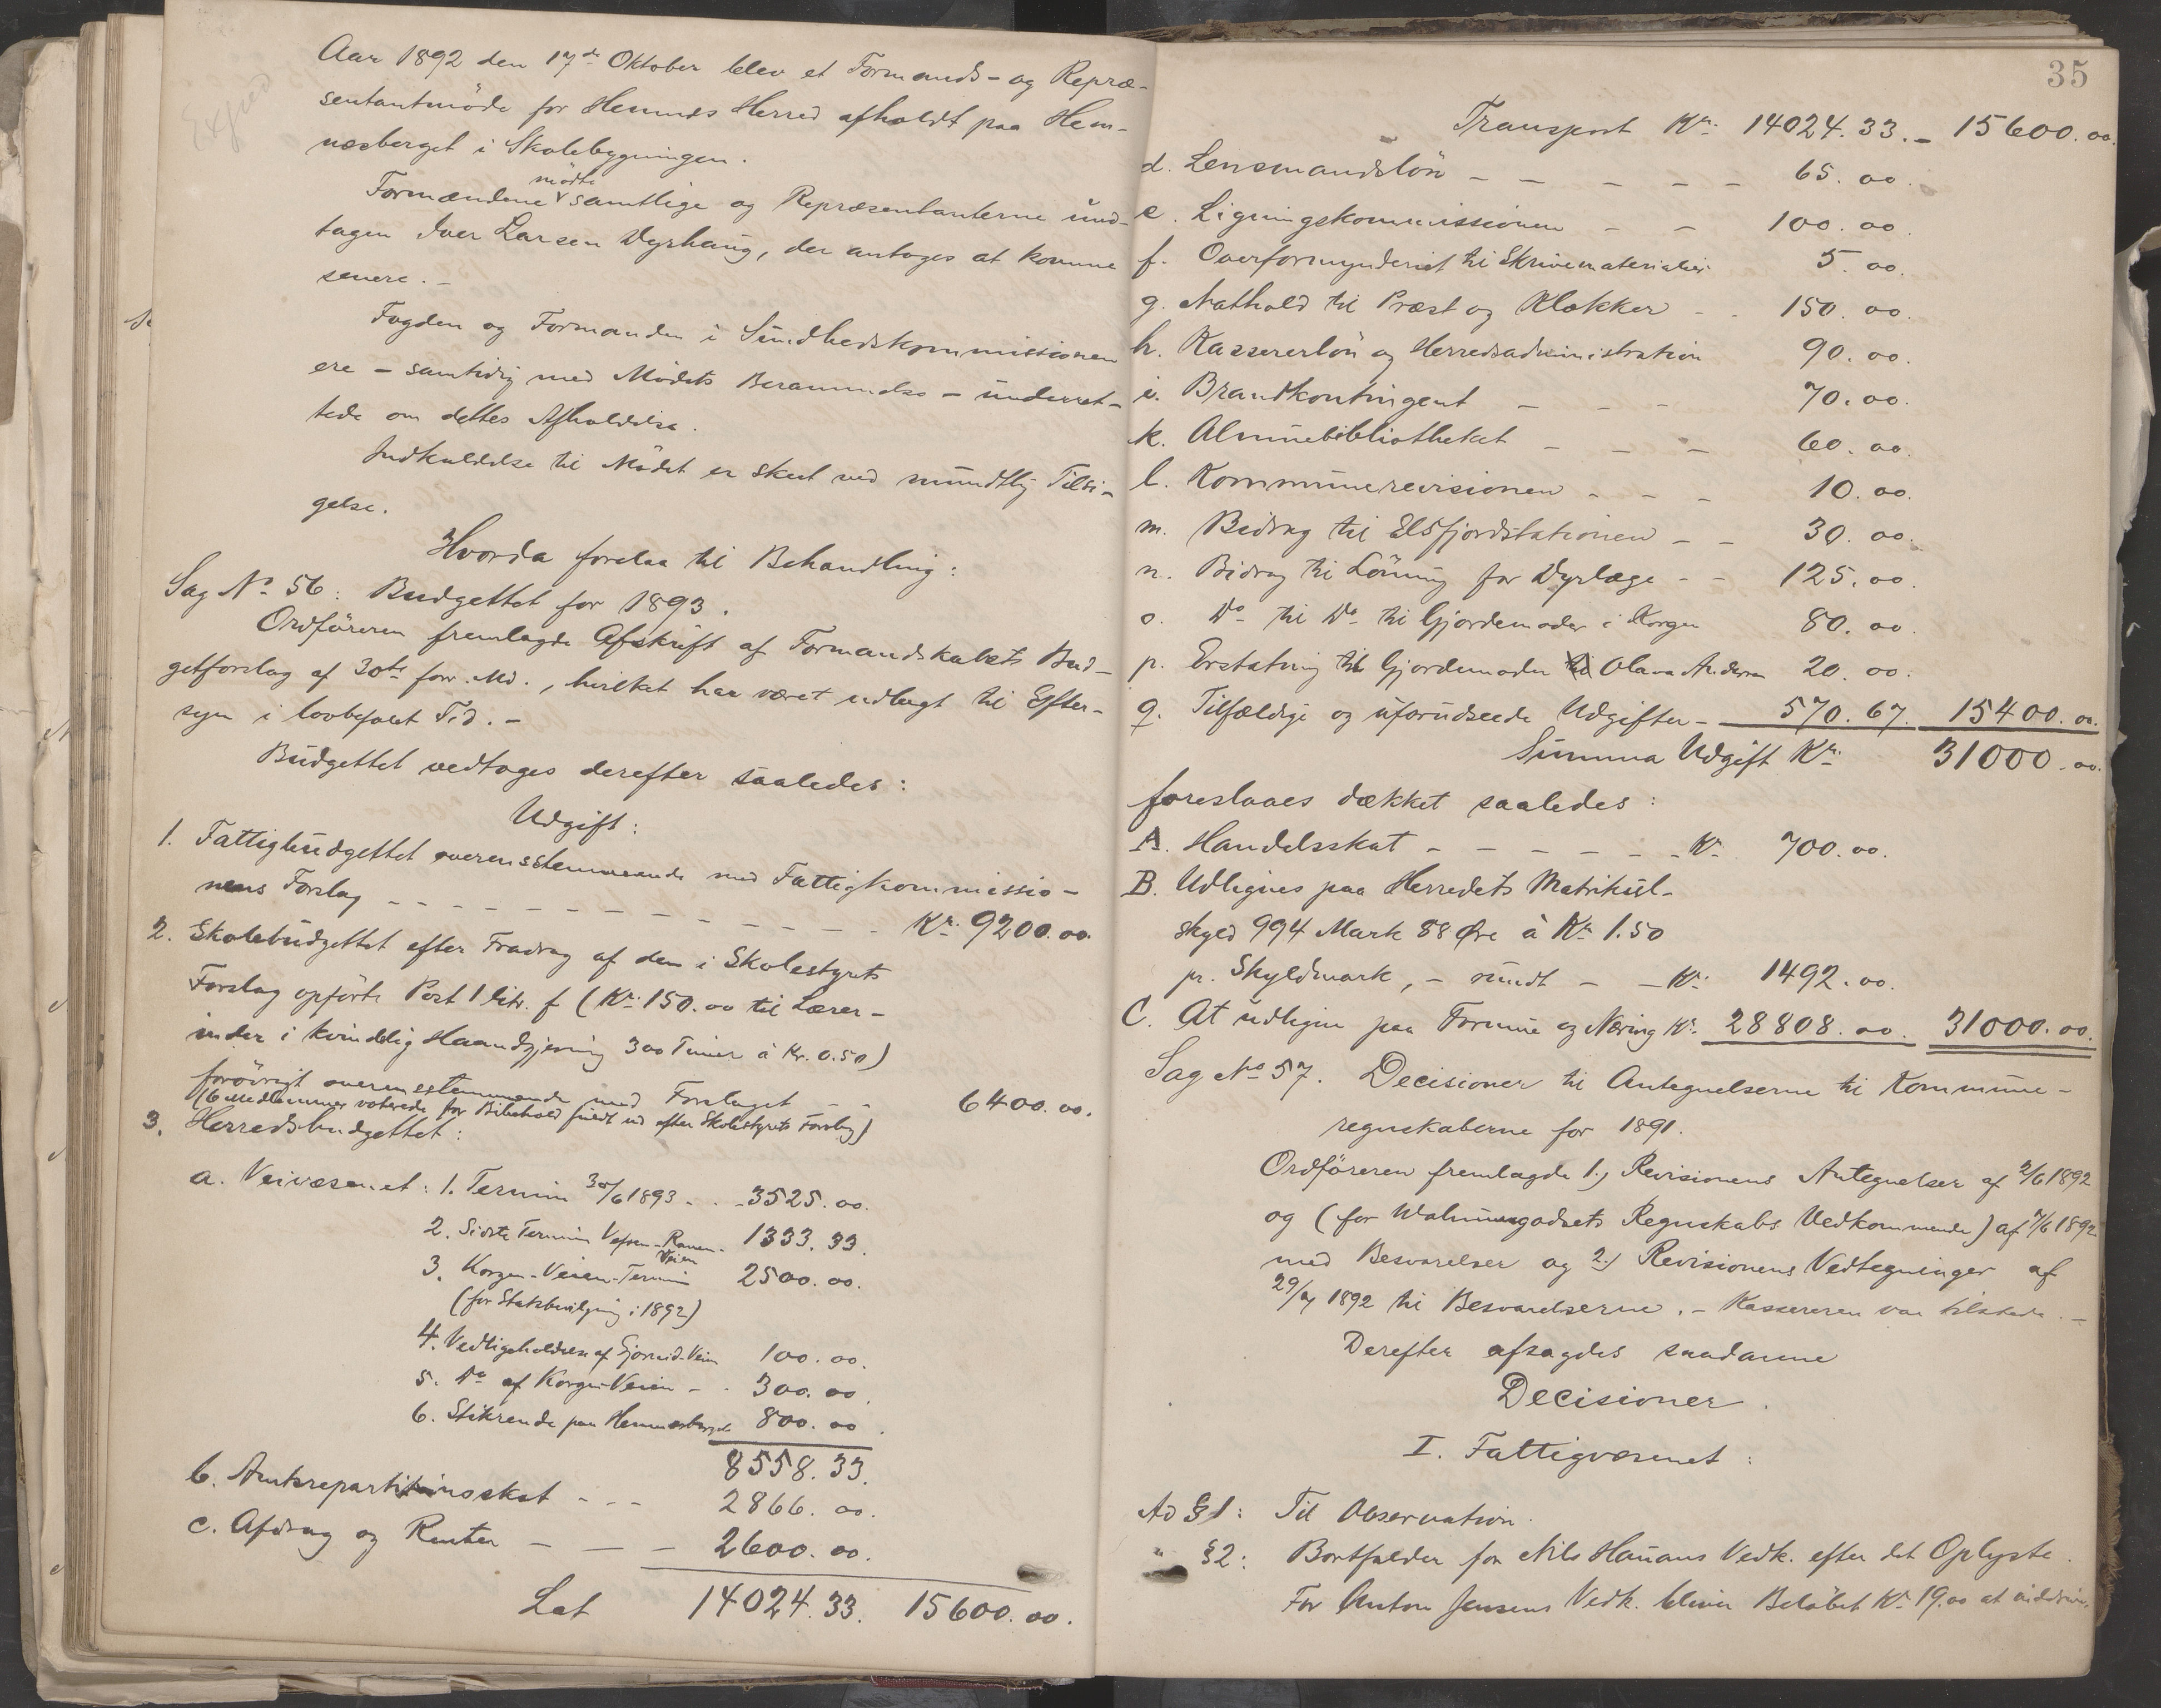 Exped
Aar 1892 den 17de Oktober blev et Formands- og Repræ-
sentantmöde for Hemnes Herred afholdt paa Hem-
nesberget i Skolebygningen.
mödte
Formændene samtlige og Repræsentanterne und-
tagen Iver Larsen Dyrhaug, der antoges at komme
senere. -
Fogden og Formanden i Sundhedskommissionen
ere - samtidig med Mödets Berammelse - underret-
tede om dettes Afholdelse.
Indkaldelse til Mödet er skeet ved mundtlig Tilsi-
gelse.
Hvorda forelaa til Behandling:
Sag No 56: Budgettet for 1893.
Ordföreren fremlagde Afskrift af Formandskabets Bud-
getforslag af 30te forr. Md., hvilket har været udlagt til Efter-
syn i lovbefalet Tid. -
Budgettet vedtoges derefter saaledes:
Udgift:
1. Fattigbudgettet overensstemmende med Fattigkommissio-
nens Forslag - - - Kr. 9200.00.
2. Skolebudgettet efter Fradrag af den i Skolestyrets
Forslag opförte Post 1 litr. f (Kr. 150.00 til Lærer-
inder i kvindelig Haandgjerning 300 Timer à Kr. 0.50)
forövrigt overensstemmende med Forslaget - - 6400.00.
(6 Medlemmer voterede for Bibehold fuldt ud efter Skolestyrets Forslag)
3. Herredsbudgettet:
a. Veivæsenet: 1. Termin 30/6 1893 - - 3525.00.
2. Sidste Termin Vefsen-Ranen- 1333.33.
Veien
3. Korgen-Veien-Termin 2500.00.
(for Statsbevilgning i 1892)
4. Vedligeholdelse af Veien 100.00.
5. Do af Korgen-Veien - - 300.00.
6. Stikrende paa Hemnesberget 800.00.
8558.33.
b. Amtsrepartitionsskat - - - 2866.00.
c. Afdrag og Renter - - - 2600.00.
Lat 14024.33. 15600.00.
35
Transport Kr. 14024.33. - 15600.00.
d. Lensmandslön - - - - - 65.00.
e. Ligningskommissionen - - 100.00.
f. Overformynderiet til Skrivematerialier 5.00.
g. Nathold til Præst og Klokker - - 150.00.
h. Kassererlön og Herredsadministration 90.00.
i. Brandkontingent - - - 70.00.
k. Almuebibliotheket - - - 60.00.
l. Kommunerevisionen - - - 10.00.
m. Bidrag til Elsfjordstationen - - 30.00.
n. Bidrag til Lönning for Dyrlæge - - 125.00.
o. Do til Do til Gjordemoder i Korgen 80.00.
p. Erstatning til Gjordemoder Olava Andersen 20.00.
q. Tilfældige og uforudseede Udgifter - 570.67. 15400.00.
Summa Udgift Kr. 31000.00.
foreslaaes dækket saaledes:
A. Handelsskat - - - - - - Kr. 700.00.
B. Udlignes paa Herredets Matrikul-
skyld 994 Mark 88 Øre à Kr. 1.50
pr. Skyldmark, - rundt - - Kr. 1492.00.
C. At udligne paa Formue og Næring Kr. 28808.00. 31000.00.
Sag No 57. Decisioner til Antegnelserne til Kommune-
regnskaberne for 1891.
Ordföreren fremlagde 1.) Revisionens Antegnelser af 2/6 1892
og (for godsets Regnskabs Vedkommende) af 7/6 1892
med Besvarelser og 2.) Revisionens Vedtegninger af
29/7 1892 til Besvarelserne. - Kassereren var tilstede. -
Derefter afsagdes saadanne
Decisioner.
I. Fattigvæsenet:
Ad § 1: Til Observation.
" § 2: Bortfalder for Nils Hauans Vedk. efter det Oplyste.
For Anton Jensens Vedk. bliver Belöbet Kr. 19.00 at